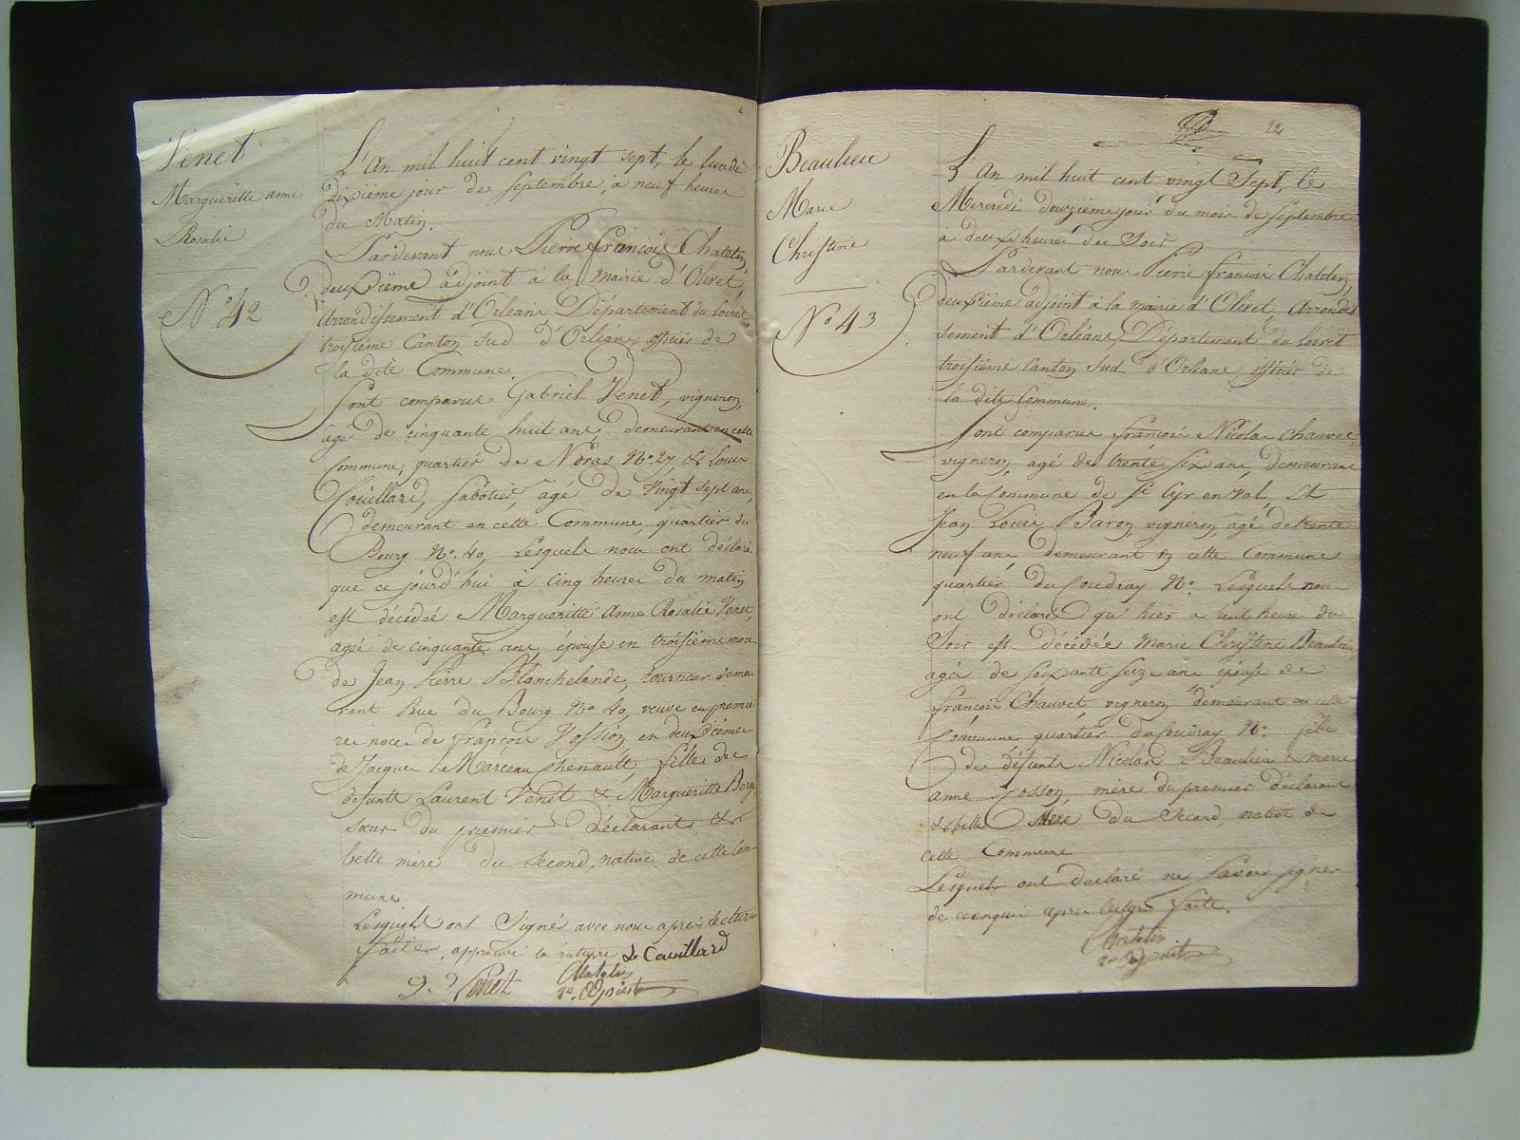 Venet
Margueritte anne
Rosalie
N° 42
L'An mil huit cent vingt sept, le lundi
dixième jour de septembre, à neuf heures
du Matin.
Pardevant nous Pierre françois Chatelin,
deuxième adjoint à la mairie d'Olivet,
Arrondissement d'Orléans Département du Loiret
troisieme Canton Sud d'Orléans, officier de
la dite Commune.
Sont comparus Gabriel Venet, vigneron,
âgé de cinquante huit ans, demeurant en cette
Commune, quartier de Noras N° 27, & Louis
Couillard, sabotier, âgé de vingt sept ans,
demeurant en cette Commune, quartier du
Bourg N° 40, Lesquels nous ont déclaré
que ce jourd'hui à cinq heures du matin
est décédée Margueritte Anne Rosalie Venet,
agé de cinquante ans, épouse en troisième noce
de Jean Pierre Blanchelande, tourneur demeu-
rant Rue du Bourg N° 40, veuve en premie-
re noce de françois Vossion, en deuxième
de Jacques Marceau Chenault, fille de
defunts Laurent Venet & Margueritte
sœur du premier Déclarant &
belle mère du second, native de cette Com-
mune
Lesquels ont Signé avec nous après lecture
faitte, approuvé la rature L Couillard
g. Venet Chatelin
2e. adjoint
22
Beaulieu
Marie
Christine
N° 43
L'An mil huit cent vingt Sept, le
Mercredi douzième jour du mois de septembre
à deux heures du Soir
Pardevant nous Pierre francois Chatelin,
deuxième adjoint à la mairie d'Olivet, Arrondis-
sement d'Orléans Département du Loiret
troisième Canton Sud d'Orléans, officier de
la dite Commune.
Sont comparus françois Nicolas Chauvet,
vigneron, agé de trente six ans, demeurant
en la Commune de St Cyr en val, Et
Jean Louis Baron, vigneron, âgé de trente
neuf ans, demeurant en cette Commune
quartier du Coudray N°. Lesquels nous
ont déclaré qu'hier a huit heures du
Soir est décédée Marie Christine Beaulieu,
agée de soixante seize ans épouse de
françois Chauvet, vigneron, demeurant en cette
Commune quartier du Coudray N° fille
de défunts Nicolas Beaulieu & marie
anne Fosson, mère du premier déclarant
& belle Mere du Second native de
cette Commune
Lesquels ont declaré ne savoir signer
de ce enquis apres lecture faite.
Chatelin
2e adjoint